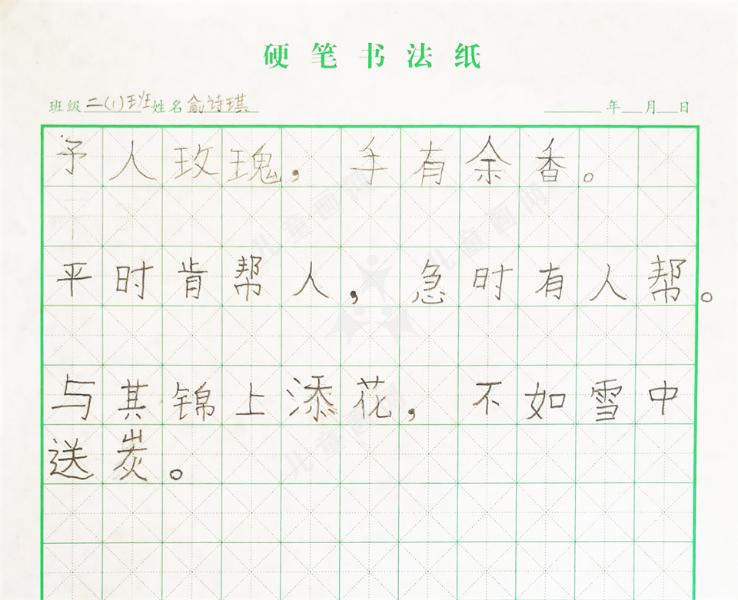 硬笔书法纸
班级二(1)班姓名俞诗琪 年 月 日
予人玫瑰，手有余香。
平时肯帮人，急时有人帮。
与其锦上添花，不如雪中
送炭。